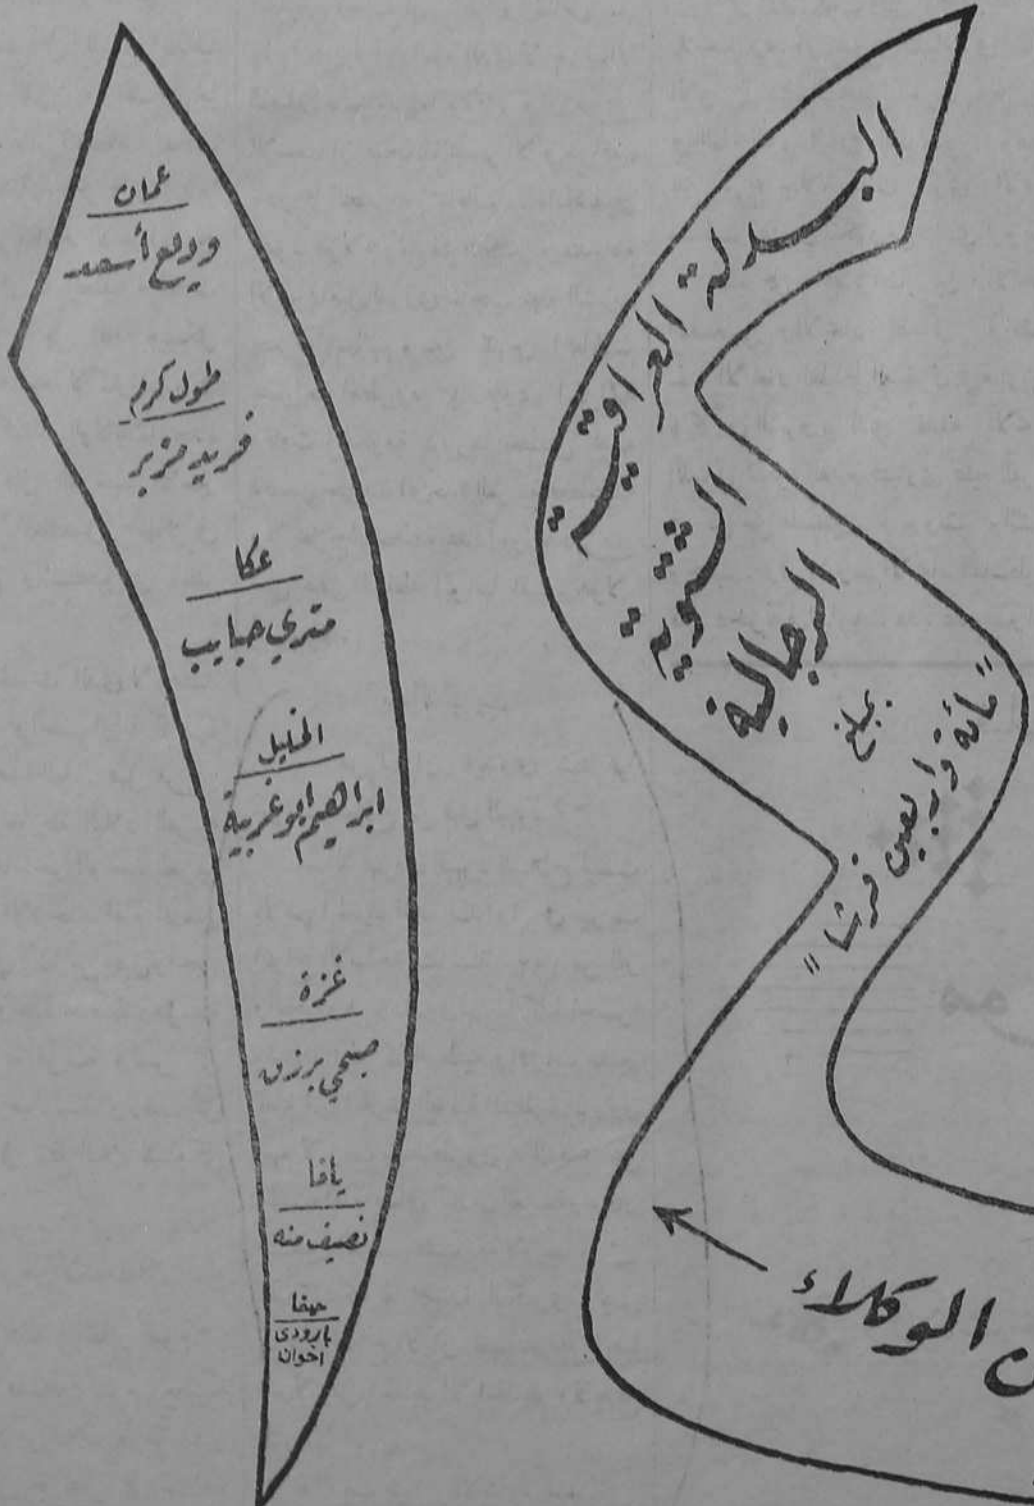 البدلة العراقية
الشتوية
الرجالية
بمبلغ
"مائة واربعين قرشا"
الوكلاء
عمان
وديع أسعد
طول كرم
فريد مزبر
عكا
متري حبايب
الخليل
ابراهيم ابو غربية
غزة
صبحي برزق
يافا
نصيف منه
حيفا
بارودى
اخوان